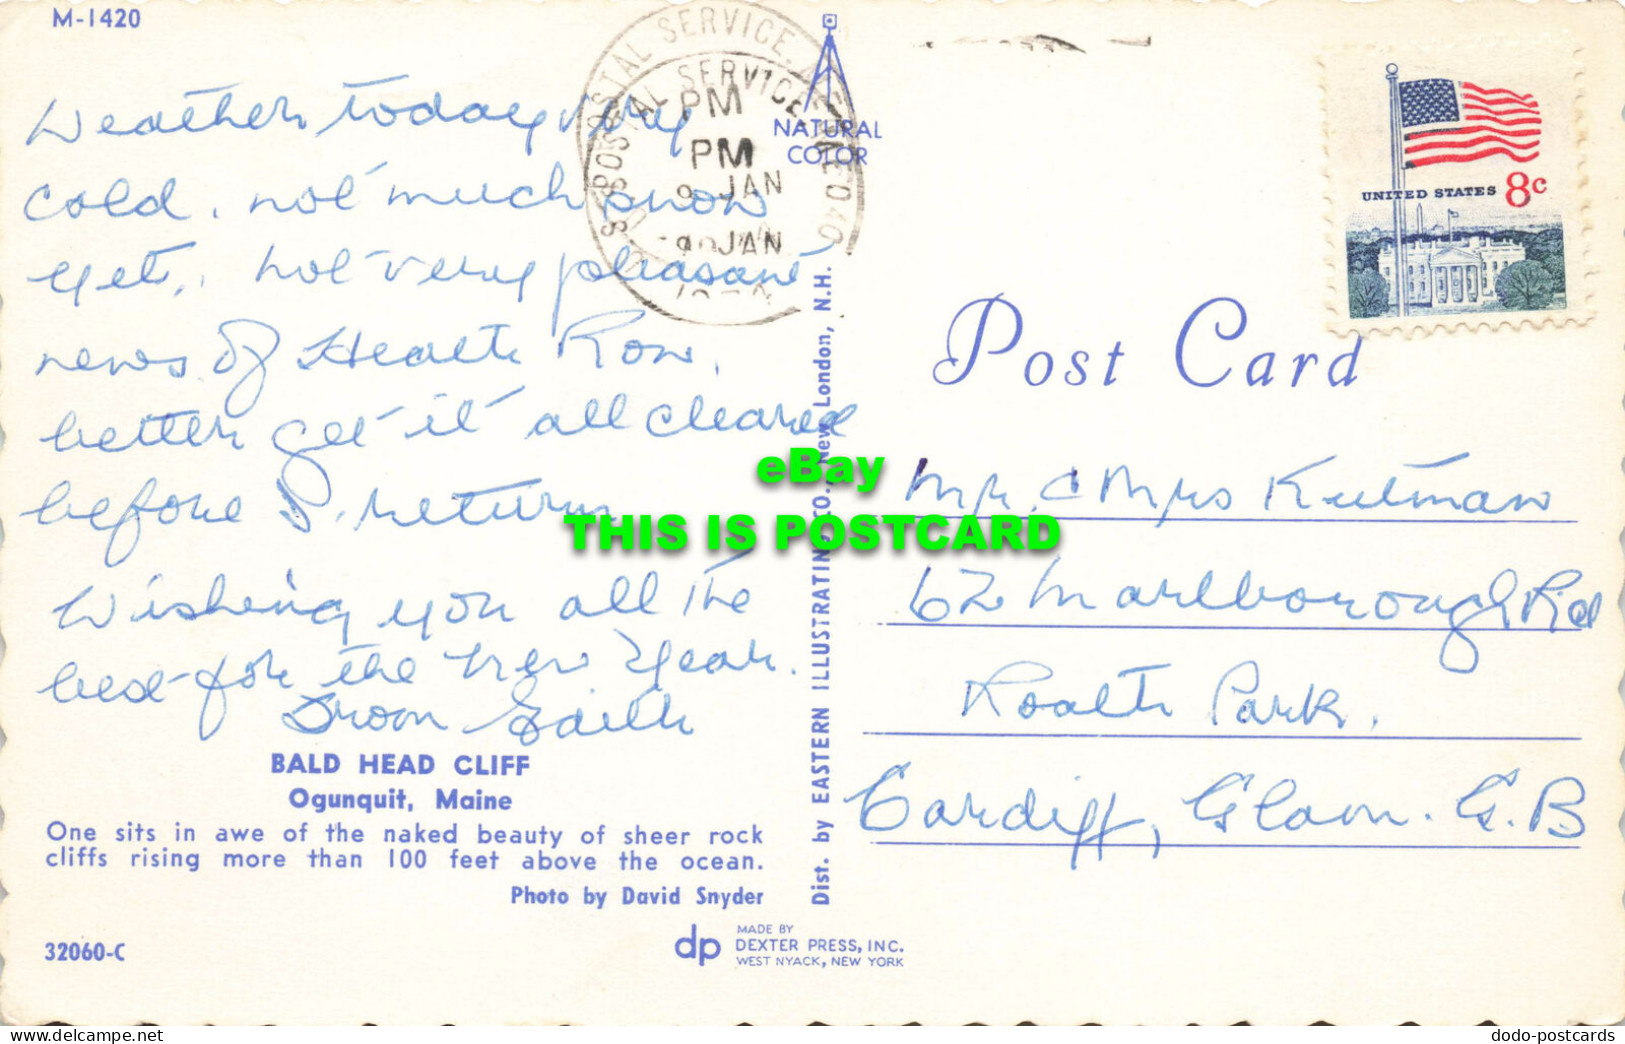 M-1420
Weather today very
cold, not much snow
yet, not very pleasant
news of Heath Row,
better get it all cleared
before I return
Wishing you all the
best for the New Year.
from Edith
BALD HEAD CLIFF
Ogunquit, Maine
One sits in awe of the naked beauty of sheer rock
cliffs rising more than 100 feet above the ocean.
Photo by David Snyder
32060-C
dp
MADE BY
DEXTER PRESS, INC.
WEST NYACK, NEW YORK
Dist. by EASTERN ILLUSTRATING CO., New London, N.H.
NATURAL
COLOR
POSTAL SERVICE
POSTAL SERVICE
PM
PM
9 JAN
9 JAN
UNITED STATES 8c
Post Card
Mr. & Mrs
62 Marlborough Rd
Roath Park.
Cardiff, Glam. G.B
eBay
THIS IS POSTCARD
dodo-postcards